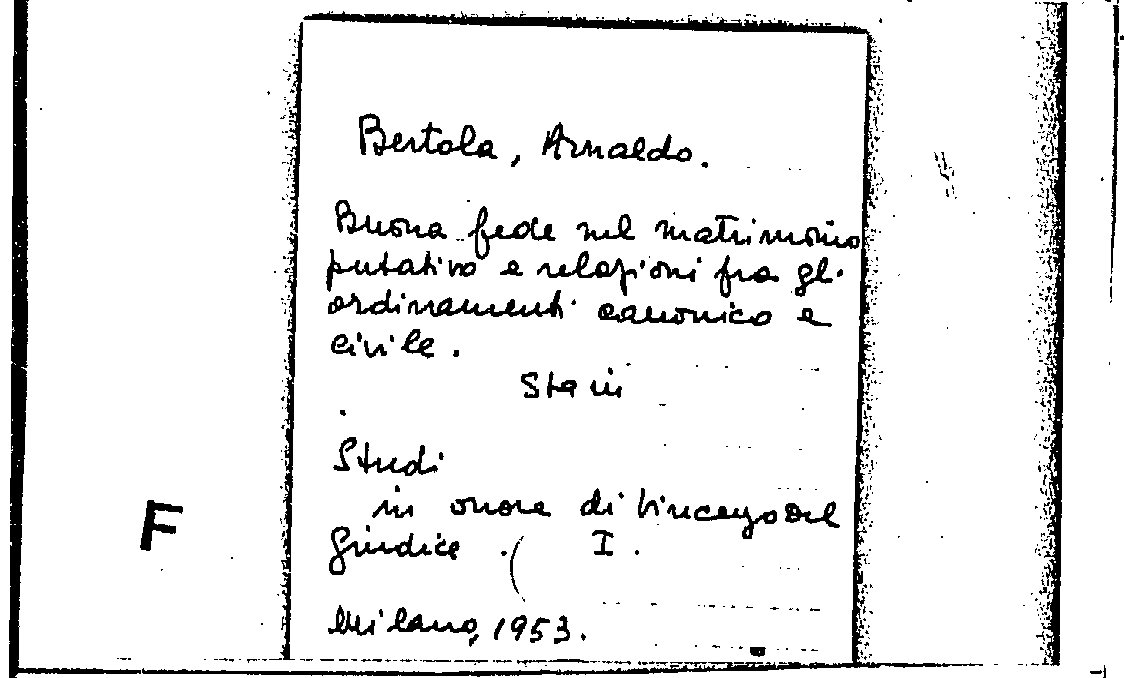 Bertola, Arnaldo.
Buona fede nel matrimonio
putativo e relazioni fra gli
ordinamenti canonico e
civile.
Sta in
Studi
in onore di Vincenzo Del
Giudice. I.
Milano, 1953.
F